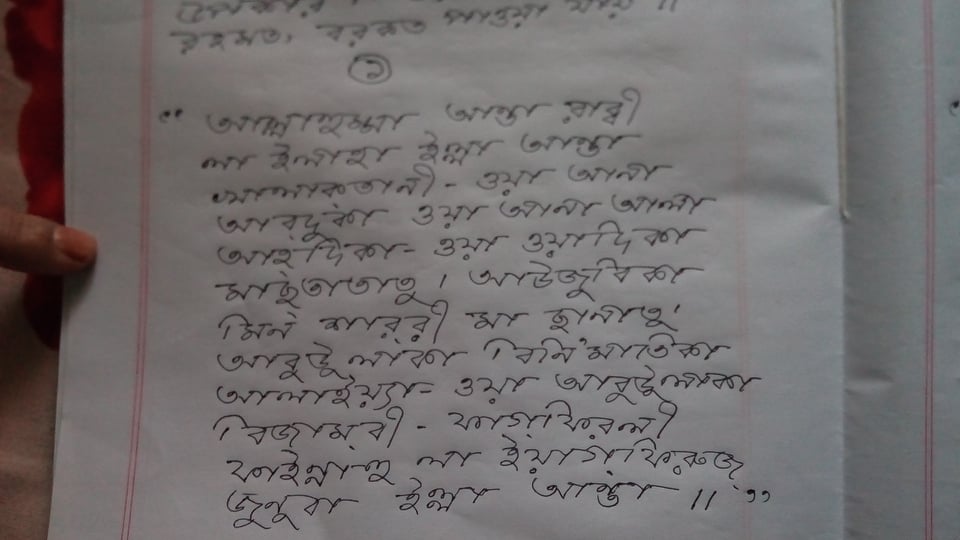 রহমত, বরকত পাওয়া যায় ॥
১
“আল্লাহুম্মা আন্তা রাব্বী
লা ইলাহা ইল্লা আন্তা
খালাকতানী - ওয়া আনা
আবদুকা ওয়া আনা আলা
আহদিকা - ওয়া ওয়াদিকা
মাছতাতাতু। আউজুবিকা
মিন শাররী মা ছানাতু'
আবুউ লাকা বিনি'মাতিকা
আলাইয়্যা - ওয়া আবুউলাকা
বিজামবী - ফাগফিরলী
ফাইন্নাহু লা ইয়াগফিরুজ
জুনুবা ইল্লা আন্তা ॥”